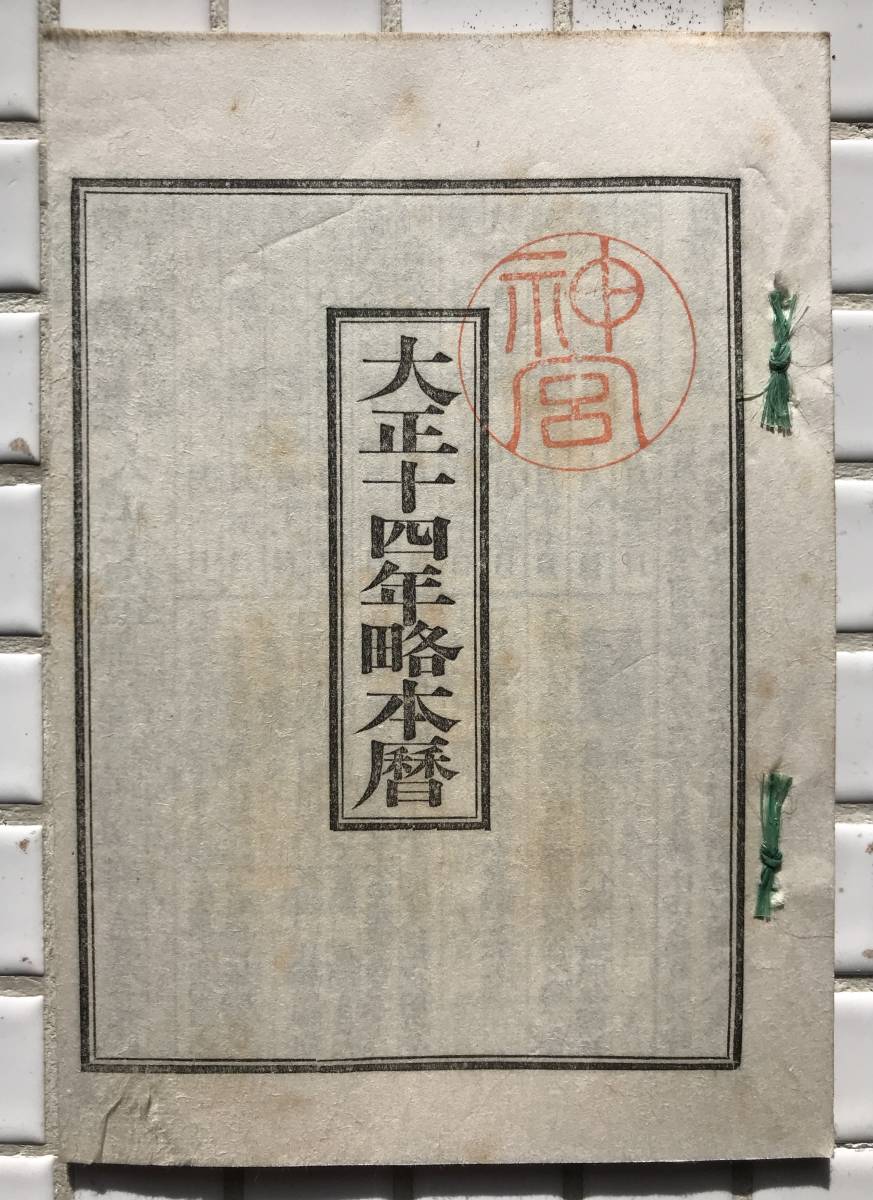 神宮
大正十四年略本暦